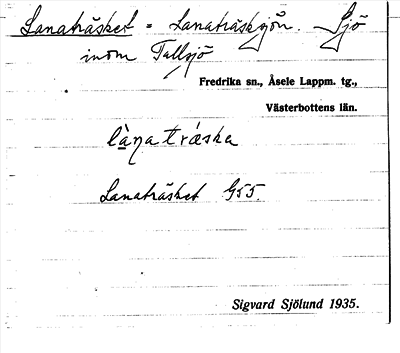 Lanaträsket = Lanaträsksjön. Sjö
inom Tallsjö
Fredrika sn., Åsele Lappm. tg.,
Västerbottens län.
làna træska
Lanaträsket G55.
Sigvard Sjölund 1935.